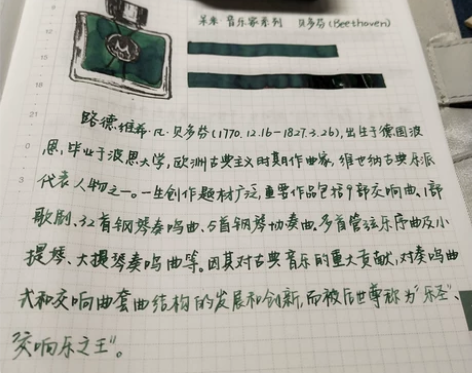 未来 音乐家系列 贝多芬 (Beethoven)
路德维希·凡·贝多芬(1770.12.16-1827.3.26),出生于德国波
恩,毕业于波恩大学,欧洲古典主义时期作曲家,维也纳古典乐派
代表人物之一。一生创作题材广泛,重要作品包括9部交响曲、1部
歌剧、32首钢琴奏鸣曲、5首钢琴协奏曲、多首管弦乐序曲及小
提琴、大提琴奏鸣曲等。因其对古典音乐的重大贡献,对奏鸣曲
式和交响曲套曲结构的发展和创新,而被后世尊称为“乐圣”、
“交响乐之王”。